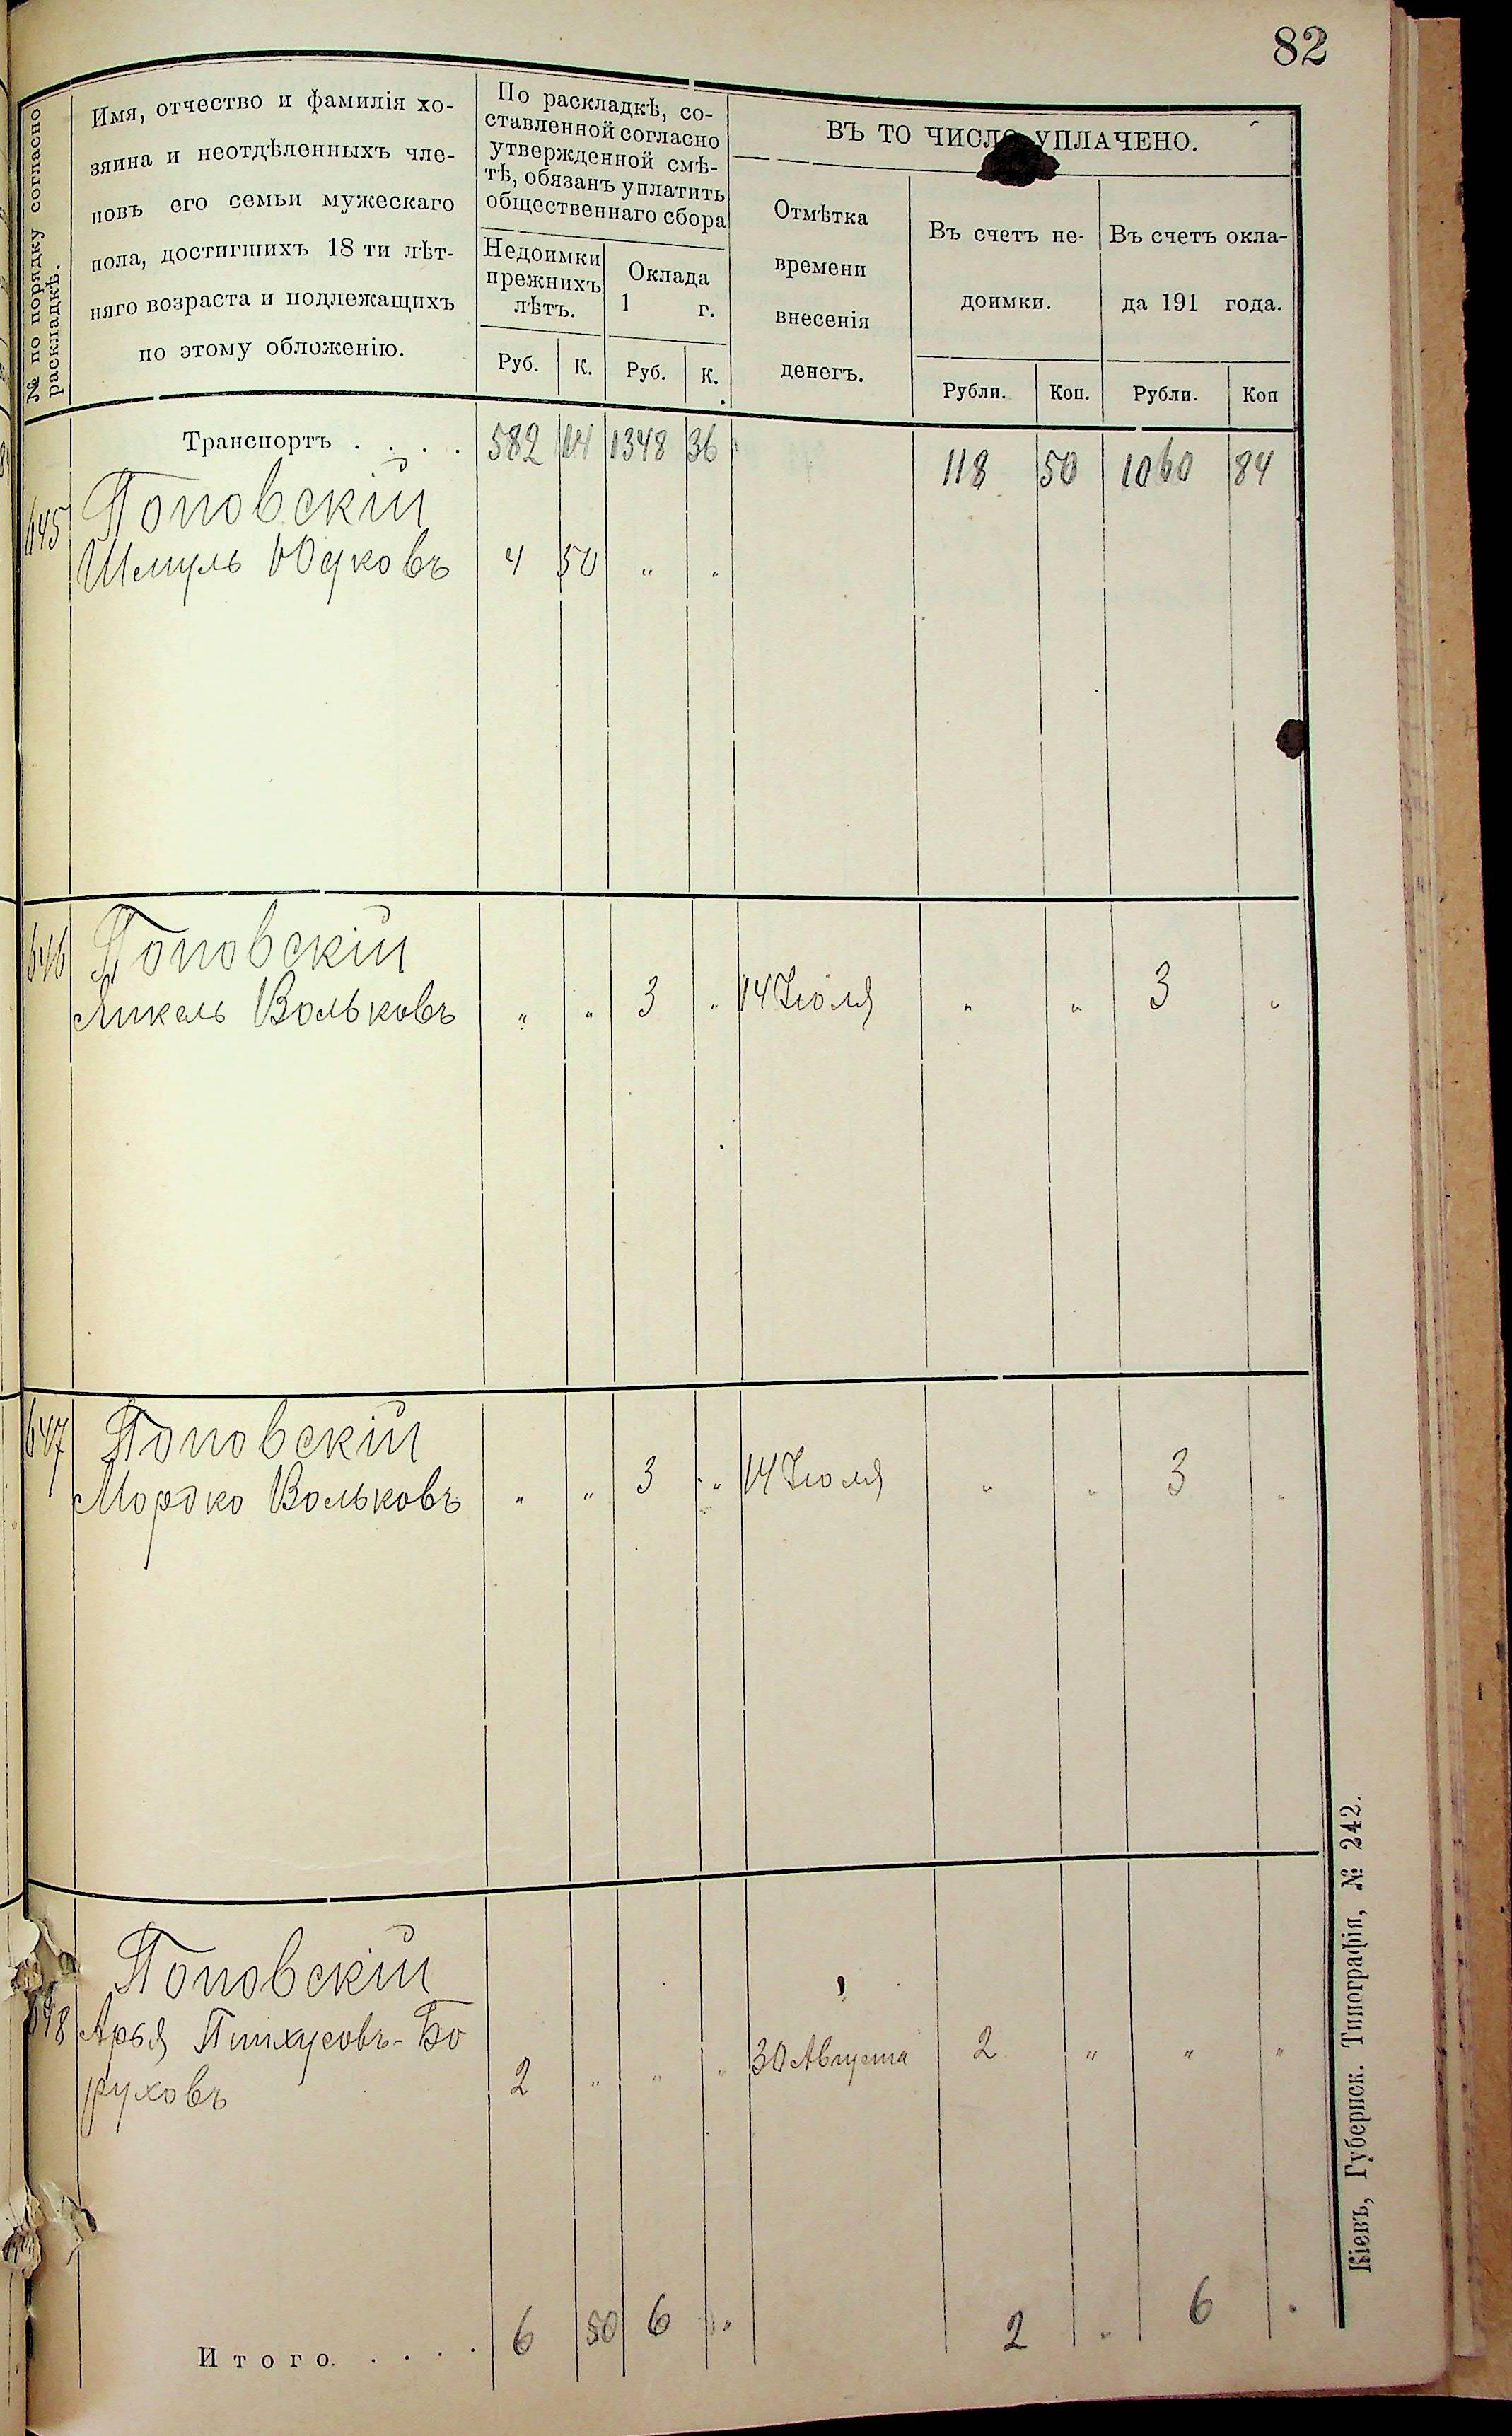 82
№ по порядку согласно
раскладкѣ.
Имя, отчество и фамилія хо-
зяина и неотдѣленныхъ чле-
новъ его семьи мужескаго
пола, достигшихъ 18 ти лѣт-
няго возраста и подлежащихъ
по этому обложенію.
По раскладкѣ, со-
ставленной согласно
утвержденной смѣ-
тѣ, обязанъ уплатить
общественнаго сбора
Недоимки
прежнихъ
лѣтъ.
Оклада
1 г.
Руб. К. Руб. К.
ВЪ ТО ЧИСЛО УПЛАЧЕНО.
Отмѣтка
времени
внесенія
денегъ.
Въ счетъ не-
доимки.
Въ счетъ окла-
да 191 года.
Рубли. Коп. Рубли. Коп
Транспортъ . . . . 582 14 1348 36 118 50 1060 84
645 Поповскій
Шмуль Юдковъ 4 50 " "
646 Поповскій
Янкель Вольковъ " " 3 " 14 Іюля " " 3 "
647 Поповскій
Мордко Вольковъ " " 3 " 14 Іюля " " 3 "
Поповскій
648 Арья Пинхусовъ-Бо
руховъ 2 " " " 30 Августа 2 " " "
Итого. . . . . 6 50 6 " 2 " 6 "
Кіевъ, Губернск. Типографія, № 242.